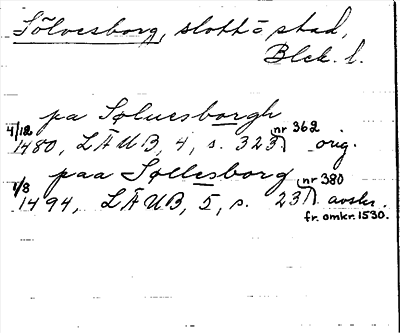 Sölvesborg, slott o stad,
Blek. l.
pa Søluesborgh
4/12 1480, LÄUB, 4, s. 323 nr 362 orig.
paa Søllesborg
1/8 1494, LÄUB, 5, s. 231 nr 380 avskr.
fr. omkr. 1530.